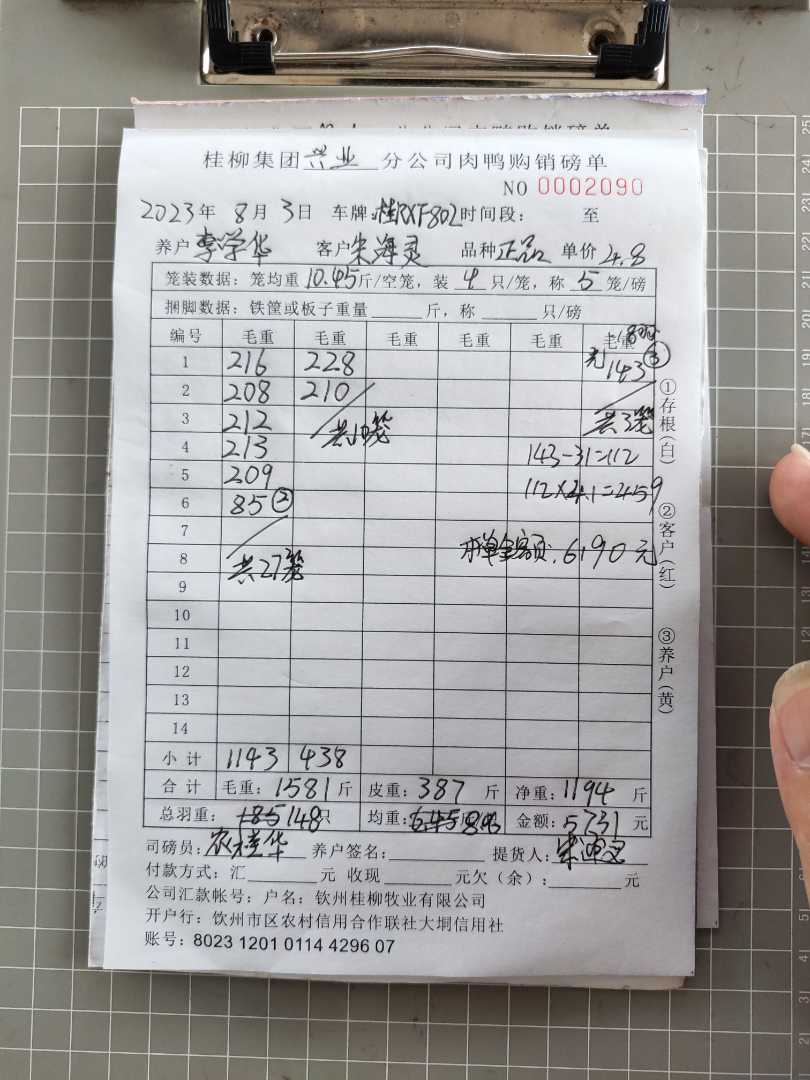 桂柳集团 兴业 分公司肉鸭购销磅单
NO 0002090
2023年 8月 3日 车牌:桂RXF802 时间段: 至
养户 李学华 客户 朱海灵 品种 正品 单价 4.8
笼装数据: 笼均重 10.45 斤/空笼, 装 4 只/笼, 称 5 笼/磅
捆脚数据: 铁筐或板子重量 斤, 称 只/磅
编号 毛重 毛重 毛重 毛重 毛重 毛重
1 216 228 143 ③
2 208 210
3 212 共10笼 共3笼
4 213 143-31=112
5 209 112×4.1=459
6 85 ②
7
8 共27笼 本单金额: 6190元
9
10
11
12
13
14
小计 1143 438
合计 毛重: 1581 斤 皮重: 387 斤 净重: 1194 斤
总羽重: 185 148 只 均重: 金额: 5731 元
司磅员: 农桂华 养户签名: 提货人: 朱海灵
付款方式: 汇 元 收现 元欠(余): 元
公司汇款帐号: 户名: 钦州桂柳牧业有限公司
开户行: 钦州市区农村信用合作联社大垌信用社
账号: 8023 1201 0114 4296 07
①存根(白)
②客户(红)
③养户(黄)